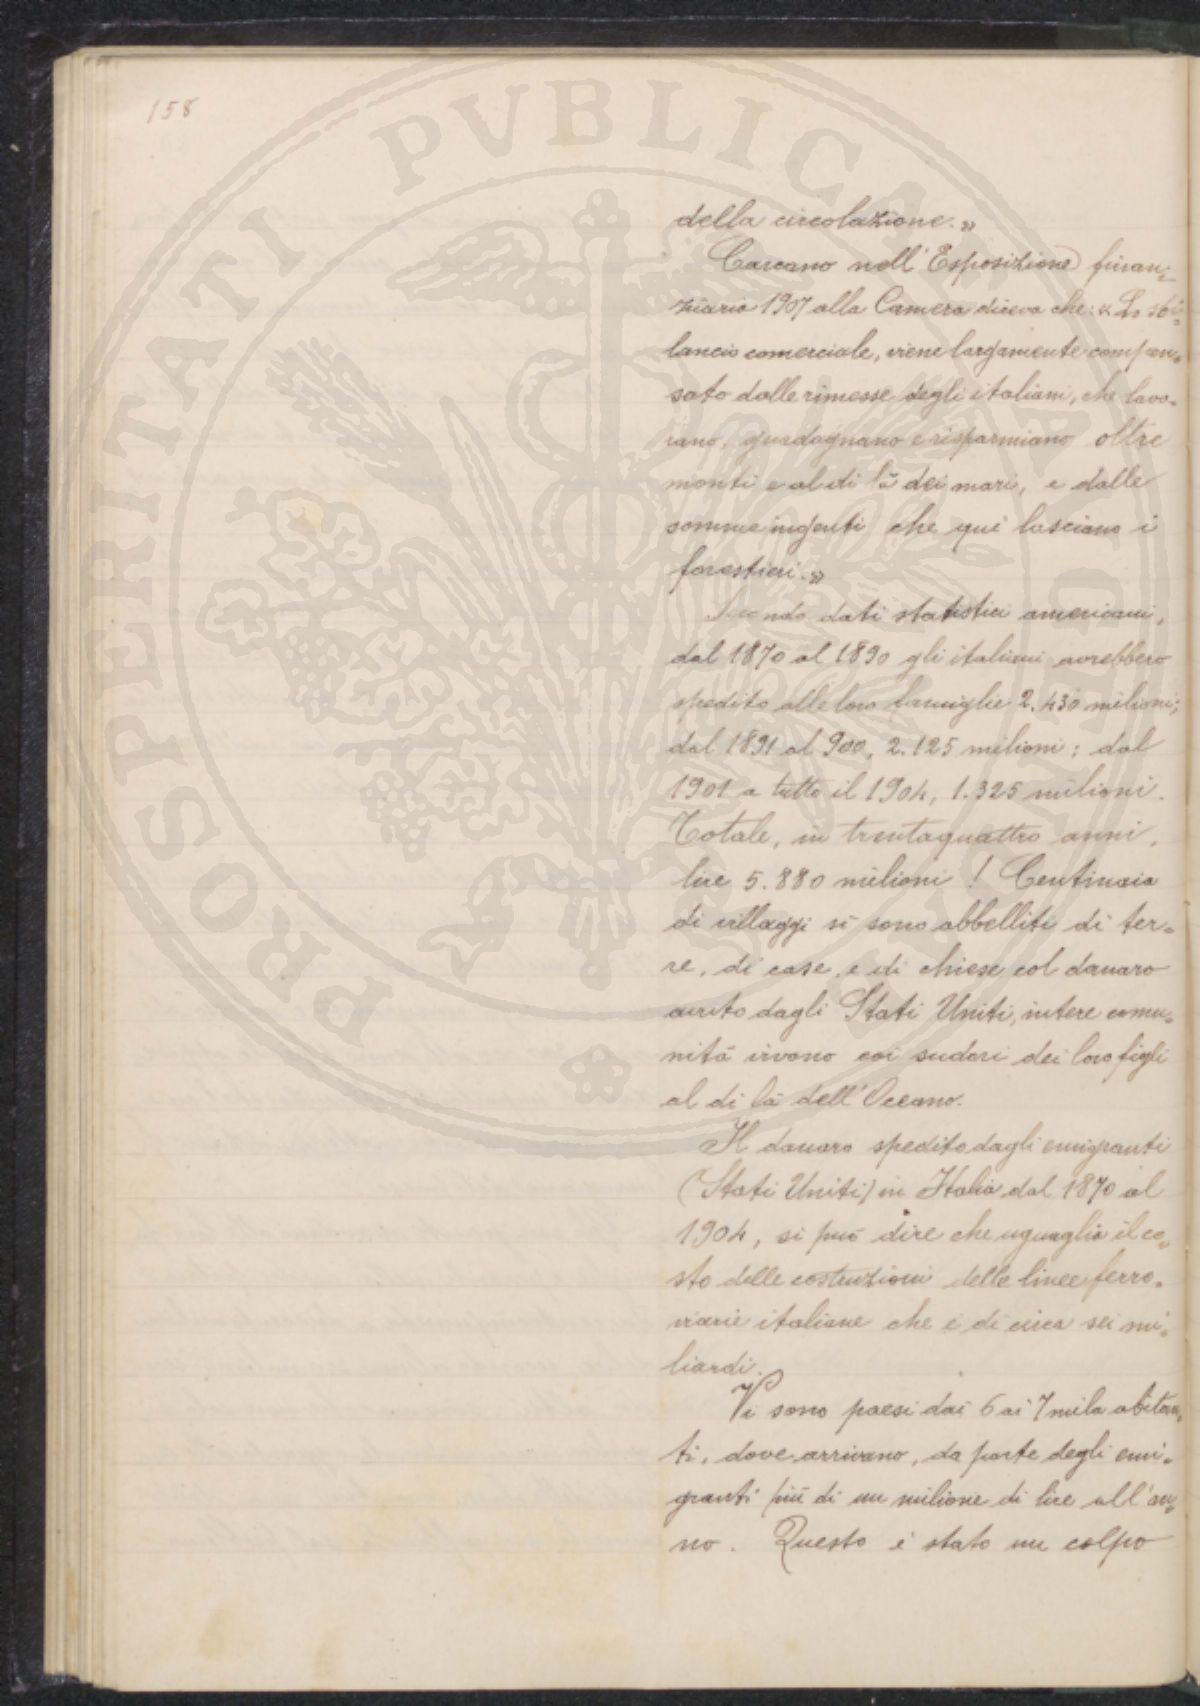 158
PROSPERITATI PVBLICAE
della circolazione.»
Carcano nell'Esposizione finan=
ziaria 1907 alla Camera diceva che: « Lo sbi=
lancio comerciale, viene largamente compen=
sato dalle rimesse degli italiani, che lavo=
rano, guadagnano e risparmiano oltre
monti e al di là dei mari, e dalle
somme ingenti che qui lasciano i
forestieri.»
Secondo dati statistici americani,
dal 1870 al 1890 gli italiani avrebbero
spedito alle loro famiglie 2.430 milioni;
dal 1891 al 900, 2.125 milioni; dal
1901 a tutto il 1904, 1.325 milioni.
Totale, in trentaquattro anni,
lire 5.880 milioni! Centinaia
di villaggi si sono abbelliti di ter=
re, di case e di chiese col danaro
avuto dagli Stati Uniti, intere comu=
nità vivono coi sudori dei loro figli
al di là dell'Oceano.
Il danaro spedito dagli emigranti
(Stati Uniti) in Italia dal 1870 al
1904, si può dire che uguaglia il co=
sto delle costruzioni delle linee ferro=
viarie italiane che è di circa sei mi=
liardi.
Vi sono paesi dai 6 ai 7 mila abitan=
ti, dove arrivano, da parte degli emi=
granti più di un milione di lire all'an=
no. Questo è stato un colpo